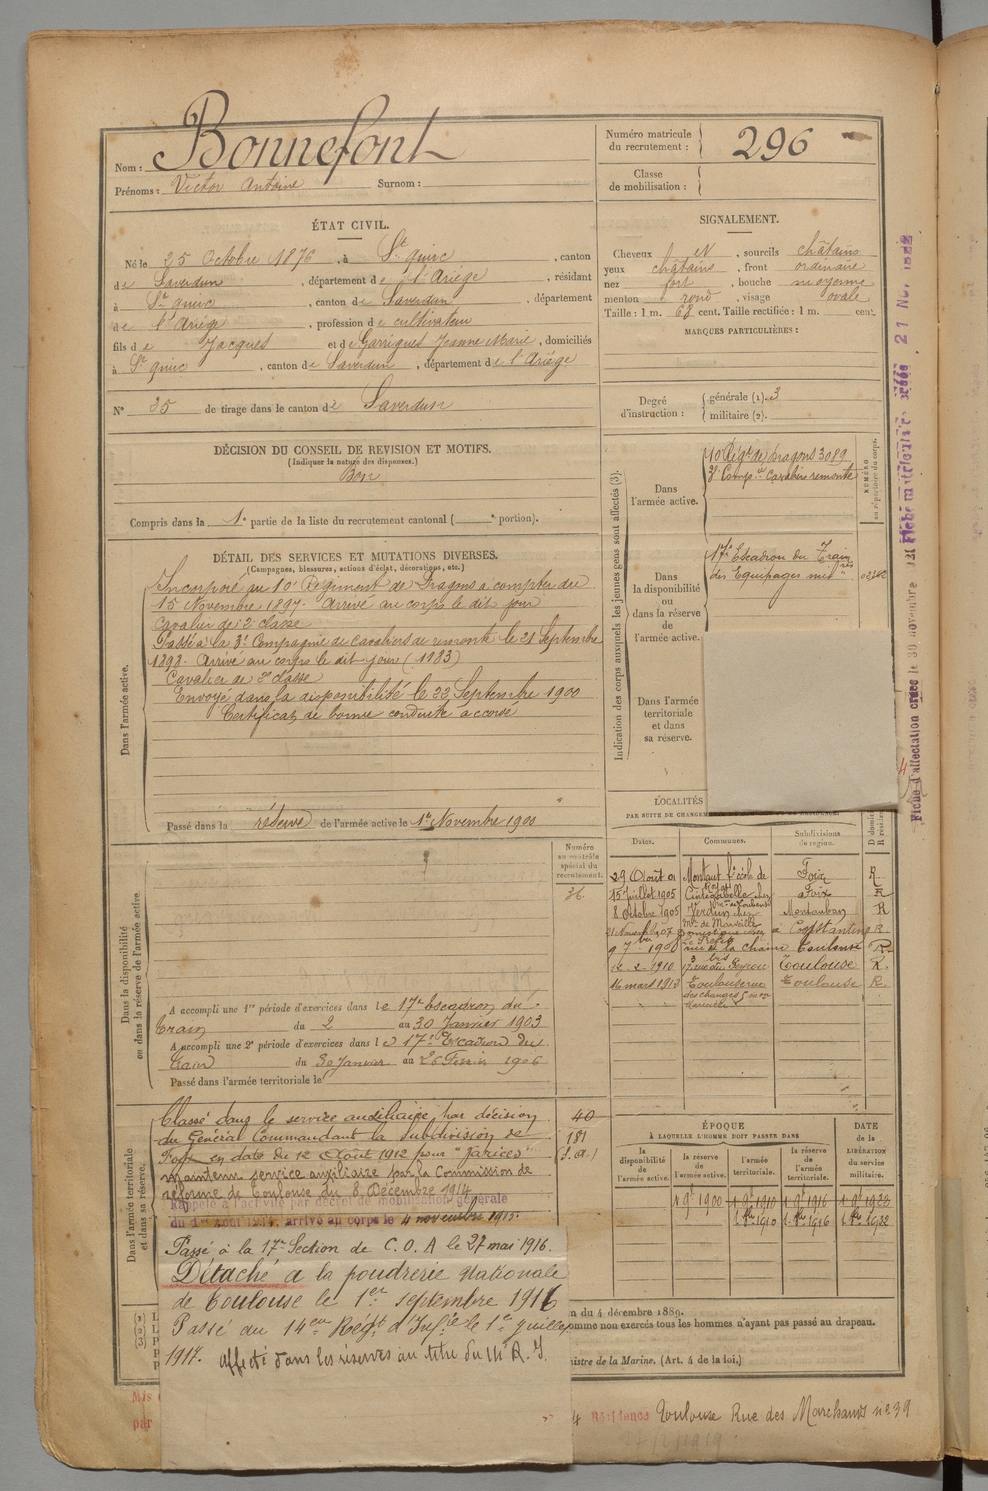 Nom : Bonnefont
Prénoms : Victor Antoine Surnom :
Numéro matricule du recrutement : 296
Classe de mobilisation :
ÉTAT CIVIL.
Né le 25 Octobre 1876, à St quirc, canton
de Saverdun, département de l'Ariège, résidant
à St quirc, canton de Saverdun, département
de l'Ariège, profession de cultivateur
fils de Jacques et de Garrigues Jeanne Marie, domiciliés
à St quirc, canton de Saverdun, département de l'Ariège
N° 35 de tirage dans le canton de Saverdun
SIGNALEMENT.
Cheveux et, sourcils châtains
yeux châtains, front ordinaire
nez fort, bouche moyenne
menton rond, visage ovale
Taille : 1 m. 68 cent. Taille rectifiée : 1 m. cent.
MARQUES PARTICULIÈRES :
Degré d'instruction : générale (1). 3
militaire (2).
DÉCISION DU CONSEIL DE REVISION ET MOTIFS.
(Indiquer la nature des dispenses.)
Bon
Compris dans la 1e partie de la liste du recrutement cantonal ( e portion).
DÉTAIL DES SERVICES ET MUTATIONS DIVERSES.
(Campagnes, blessures, actions d'éclat, décorations, etc.)
Dans l'armée active.
Incorporé au 10e Régiment de Dragons a compter du
15 Novembre 1897. Arrivé au corps le dit jour
Cavalier de 2e classe
Passé à la 3e Compagnie de cavaliers de remonte le 21 Septembre
1898. Arrivé au corps le dit jour (1983)
Cavalier de 2e classe
Envoyé dans la disponibilité le 22 Septembre 1900
Certificat de bonne conduite accordé
Passé dans la réserve de l'armée active le 1er Novembre 1900
Indication des corps auxquels les jeunes gens sont affectés (3).
NUMÉRO au répertoire du corps.
Dans l'armée active.
10 Régt de Dragons 3089
3e Compie Cavaliers remonte
Dans la disponibilité ou dans la réserve de l'armée active.
17e Escadron du Train
des Equipages mil res
Dans l'armée territoriale et dans sa réserve.
Fiche d'affectation créée le 30 novembre
Dans la disponibilité ou dans la réserve de l'armée active
Numéro au contrôle spécial du recrutement.
36.
A accompli une 1re période d'exercices dans le 17e Escadron du
Train du 2 au 30 Janvier 1903
A accompli une 2e période d'exercices dans le 17e Escadron du
Train du 30 Janvier au 26 Février 1906
Passé dans l'armée territoriale le
LOCALITÉS
PAR SUITE DE CHANGEM
Dates. Communes. Subdivisions de région. D R
29 Août 01 Montaut Foix R
15 Juillet 1905 Cintegabelle chez Foix R
8 Octobre 1905 Verdun chez Montauban R
21 Novembre 1907 Constantine R
9 7bre 1908 rue de la chaine Toulouse R
12-2-1910 Toulouse R.
16 mars 1913 Toulouse rue des changes Toulouse R.
Dans l'armée territoriale et dans sa réserve.
Classé dans le service auxiliaire, par décision
du Général Commandant la Subdivision de
Foix en date du 12 Août 1912 pour "Varices"
maintenu service auxiliaire par la Commission de
réforme de Toulouse du 8 Décembre 1914
Rappelé à l'activité par décret de mobilisation générale
du 1er Août 1914, arrivé au corps le 4 novembre 1915.
Passé à la 17e Section de C. O. A le 27 mai 1916.
Détaché a la poudrerie Nationale
de Toulouse le 1er septembre 1916
Passé au 14eme Régt d'Infie le 1er Juillet
1917. Affecté dans les réserves au titre du 14e R. I.
40
181
(S. a.)
ÉPOQUE
À LAQUELLE L'HOMME DOIT PASSER DANS
DATE de la LIBÉRATION du service militaire.
la disponibilité de l'armée active.
la réserve de l'armée active.
l'armée territoriale.
la réserve de l'armée territoriale.
1 9e 1900 1 9e 1910 1 9e 1916 1 9e 1922
1 8bre 1910 1 8bre 1916 1 8bre 1922
n du 4 décembre 1889.
omme non exercés tous les hommes n'ayant pas passé au drapeau.
nistre de la Marine. (Art. 4 de la loi.)
Mis
par
Résidence Toulouse Rue des Marchands n° 39